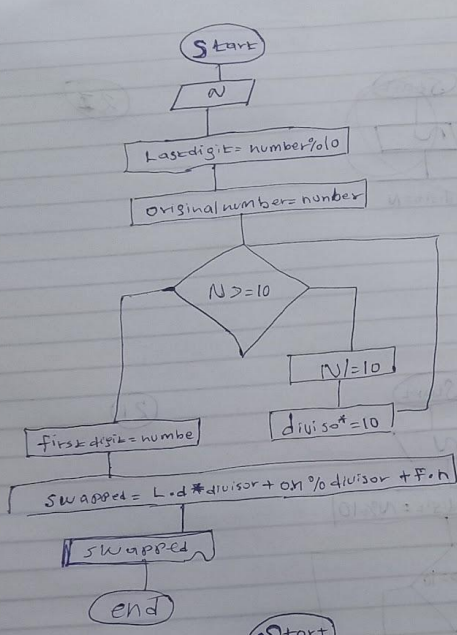 Start
N
Lastdigit = number%10
Original number = number
N >= 10
N/=10
diviso*=10
first digit = numbe
swapped = L.d * divisor + on % divisor + F.n
swapped
end
Start